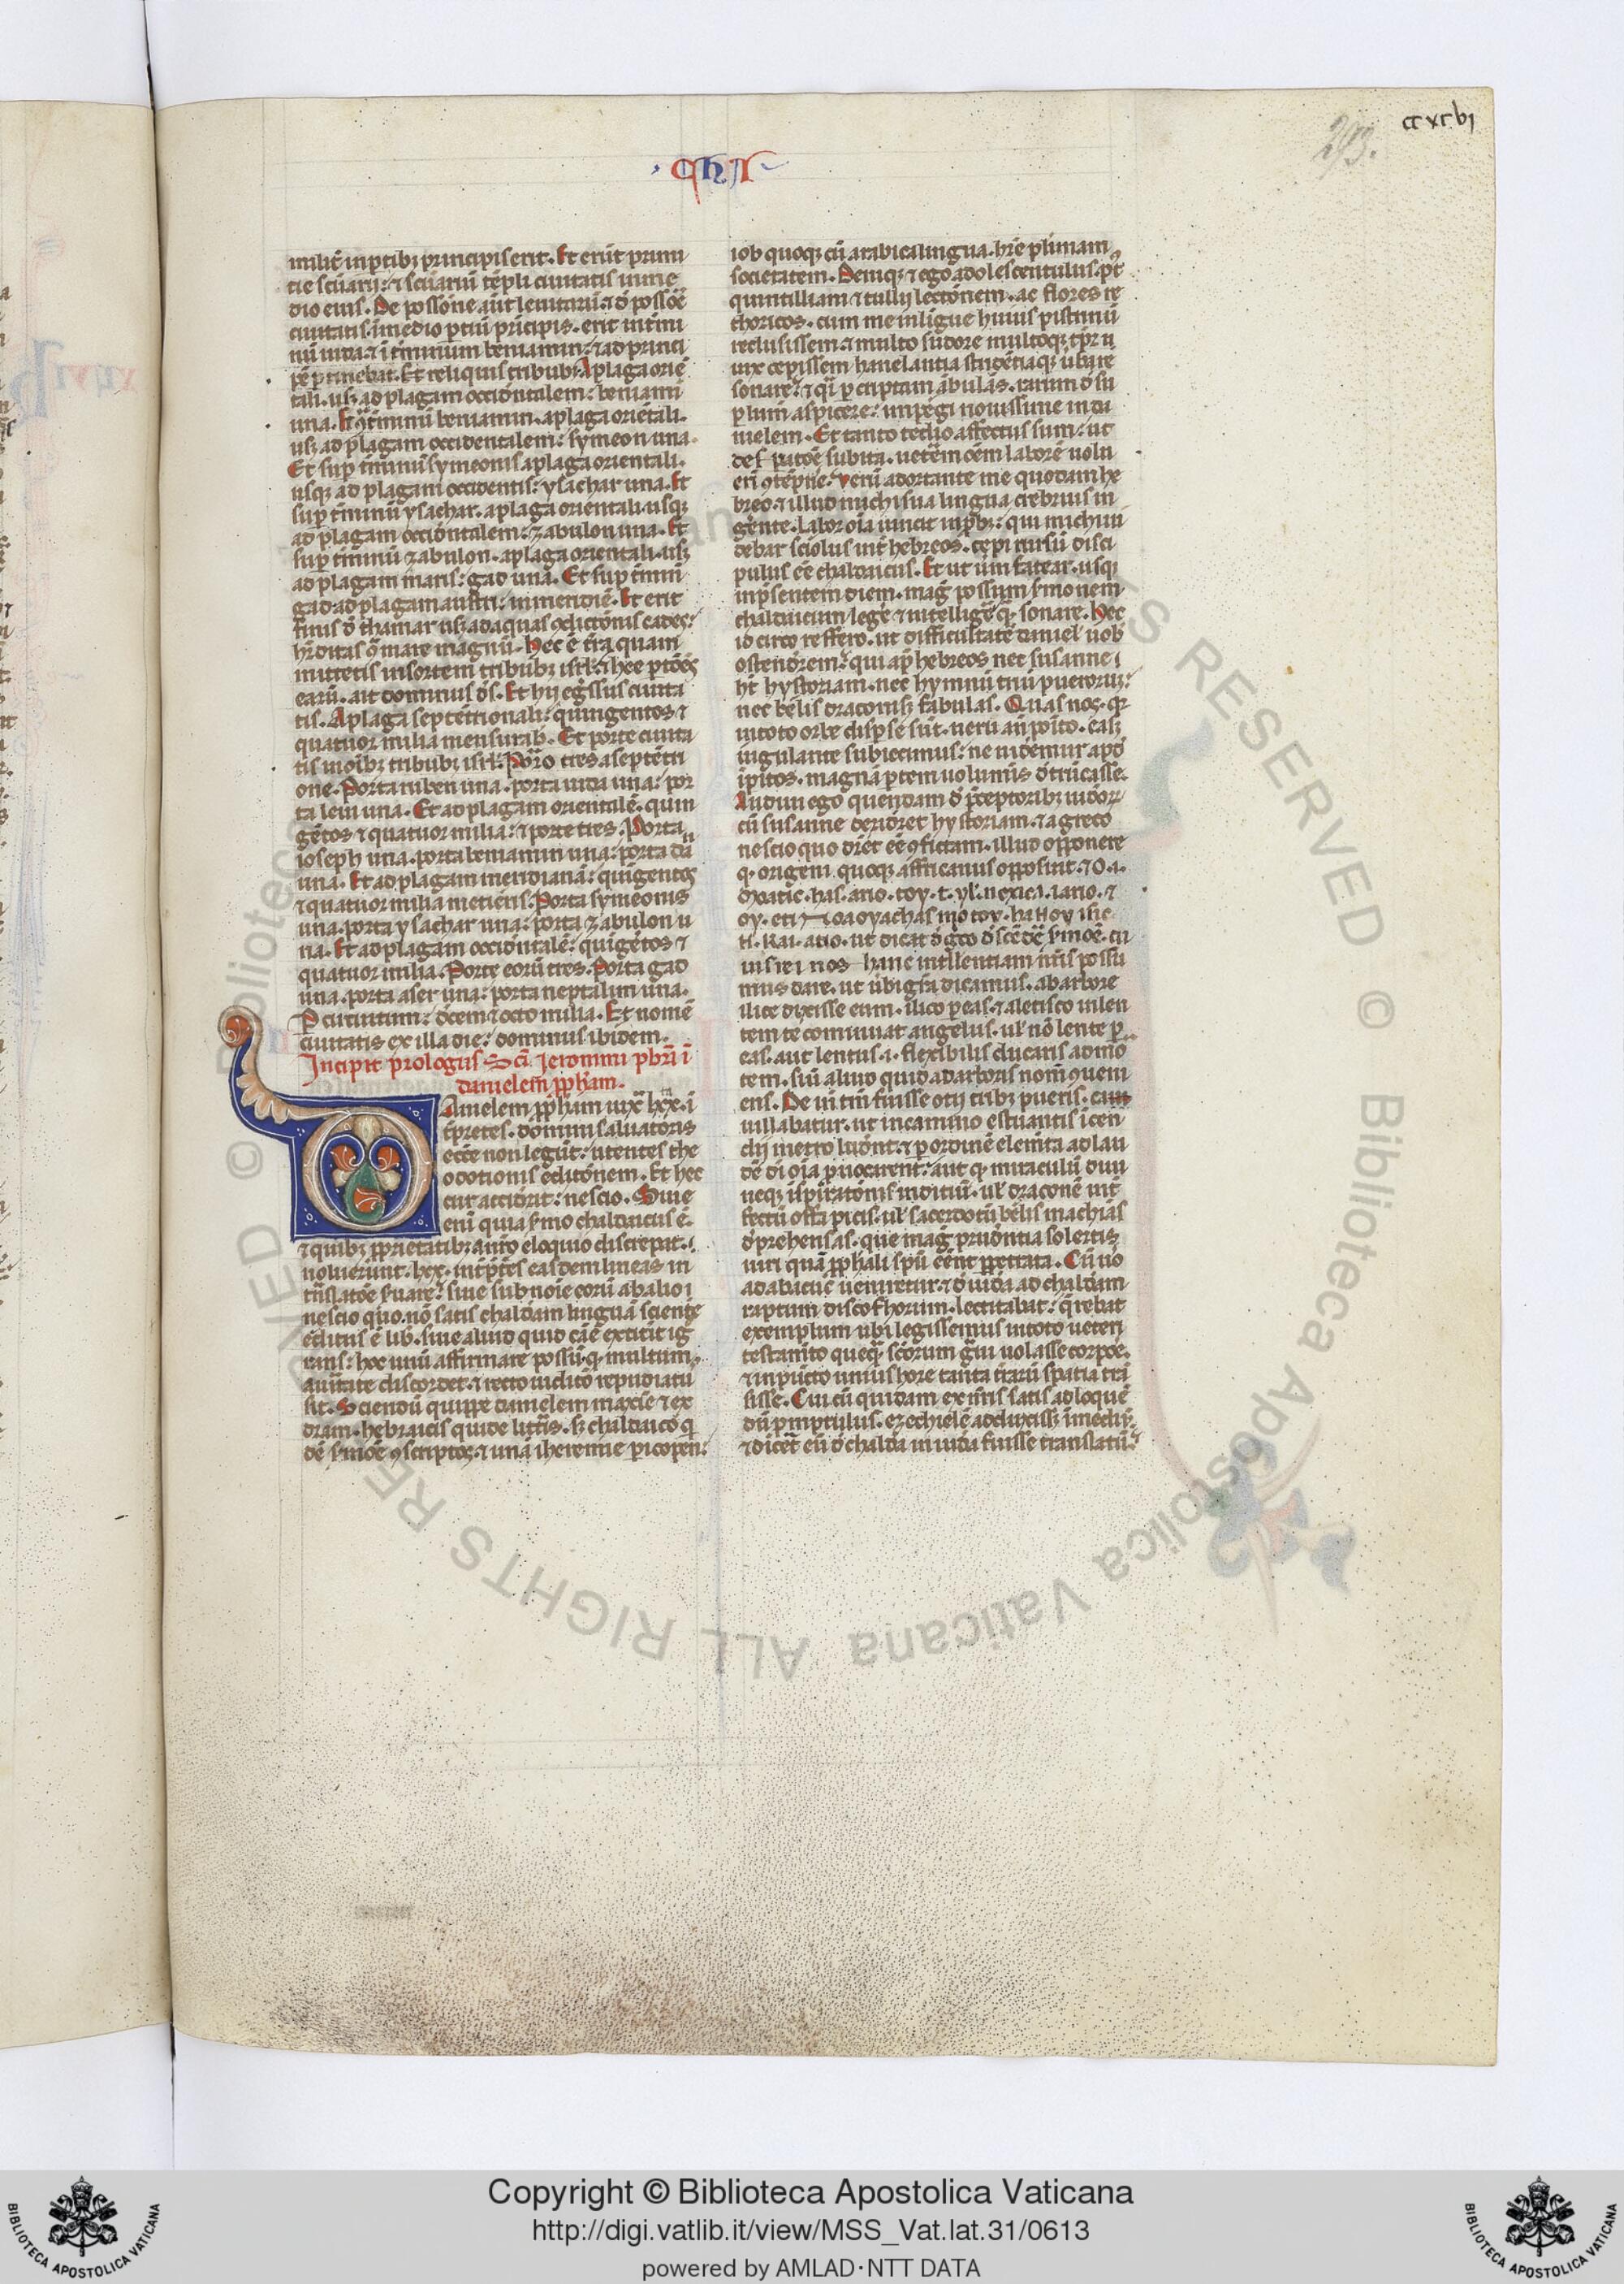 ccxcvi
293.
milit̄ in ꝑtibꝫ principis erit. Et erūt primi
tie sc̄uarij: ⁊ sc̄uariū tēpli ciuitatis in me
dio eius. De possōne aūt leuitarū ⁊ d̄ possōē
ciuitatis ī medio ꝑtiū p̄ncipis. erit in t̄mi
nū iuda ⁊ ī t̄minum beniamin: ⁊ ad princi
pē ꝑtinebat. Et reliquis tribubꝫ. A plaga oriē
tali. usꝫ ad plagam occidētalem: beniamī
una. Et ꝯͣ t̄minū beniamin. a plaga oriētali.
usꝫ ad plagam occidentalem: symeon una.
Et sup̄ t̄minū symeonis a plaga orientali.
usqꝫ ad plagam occidentis: ysachar una. Et
sup̄ t̄minū ysachar. a plaga orientali usqꝫ
ad plagam occidētalem: zabulon una. Et
sup̄ t̄minū zabulon. a plaga orientali. usꝫ
ad plagam maris: gad una. Et sup̄ t̄minū
gad ad plagam austri: in meridiē. Et erit
finis d̄ thamar usꝫ ad aquas ꝯdictōnis cades:
hꝛ̄ditas ꝯͣ mare magnū. Hec ē t̄ra quam
mittetis in sortem tribubꝫ isrl̄. ⁊ hee ꝑtōēs
earū. ait dominus d̄s. Et hij egr̄ssus ciuita
tis. A plaga septētrionali: quingentos ⁊
quatuor milia mensurab. Et porte ciuita
tis in oībꝫ tribubꝫ isrl̄. Porro tres a septētri
one. Porta ruben una. porta iuda una: por
ta leui una. Et ad plagam orientalē. quin
gētos ⁊ quatuor milia: ⁊ porte tres. Porta
ioseph una. porta beniamin una: porta dan
una. Et ad plagam meridianā: quīgentos
⁊ quatuor milia metieris. Porta symeonis
una. porta ysachar una: porta zabulon u
na. Et ad plagam occidētalē: quīgētos ⁊
quatuor milia. Porte eorū tres. Porta gad
una. porta aser una: porta neptalim una.
P̱ circuitum: decem ⁊ octo milia. Et nomē
ciuitatis ex illa die: dominus ibidem.
Incipit prologus Scī Ieronimi pb̄ri ī
danielem ꝓph̄am.
Danielem ꝓph̄am iuxͣ lxx. ī
t̄pretes. domini saluatoris
ecc̄e non legūt: utentes the
odotionis editōnem. Et hec
cur acciderit: nescio. Siue
enī quia s̄mo chaldaicus ē.
⁊ quibꝫ ꝓprietatibꝫ a nr̄o eloquio discrepat.
noluerunt. lxx. int̄pt̄es easdem lineas in
tn̄slatōe s̄uare: siue sub noīe eorū ab alio
nescio quo nō satis chaldam linguā sciente
editus ē lib̄. siue aliud quid cāe extitit ig
rans: hoc unū affirmare possū. qꝫ multum a
ūitate discordet. ⁊ recto iudicō repudiatū
sit. Sciendū quippe danielem maxīe ⁊ ex
dram. hebraicis quidē litt̄is. sꝫ chaldaico q̄
dē s̄mōe ꝯscriptos. ⁊ unā iheremie ꝑicopen:
iob quoqꝫ cū arabica lingua. hr̄e plimam
societatem. Deniqꝫ ⁊ ego adolescentulus. p̄t
quintilliani ⁊ tullij lectōnem. ac flores re
thoricos. cum me in ligue huius pistrinū
reclusissem. ⁊ multo sudore multoqꝫ tp̄r
uix cepissem hanelantia stridētiaqꝫ ūba re
sonare: ⁊ qͥ ꝑ criptam ābulās. rarum d̄ su
ꝑ lum aspicere: impegi nouissime in da
nielem. Et tanto tedio affectus sum: ut
desꝑatōē subita. uetēm oēm laborē uolu
erī ꝯtēpne. Verū adortante me quodam he
breo. ⁊ illud michi sua lingua crebrius in
gēnte. labor oīa uincit inp̄bꝫ: qui michi ui
debar sciolus int̄ hebreos. cepi rursū disci
pulus eē chaldaicus. Et ut ūm fatear. usqꝫ
in p̄sentem diem. mag̃ possum s̄monem
chaldaicum leg̃e ⁊ intellig̃e qͣꝫ sonare. Hec
idcirco reffero. ut difficultatē daniel' uob̄
ostenderem: qui ap̄ hebreos nec susanne
h̄t hystoriam. nec hymnū triū pueroruꝫ:
nec belis draconisqꝫ fabulas. Quas nos. qꝛ
in toto orbe disp̄se sūt. ueru an̄ posito. easqꝫ
iugulante subiecimus: ne uidemur apd̄
ipitos. magnā ꝑtem uolumīs dt̄rūcasse.
Audiui ego quendam d̄ p̄ceptoribꝫ iudeoꝝ
cū susanne derideret hystoriam. ⁊ a greco
nescio quo dr̄et eē ꝯfictam. illud opponere
qͣ. origeni quoqꝫ affricanus opposuit.
ti. kai. apo. ut dicat d̄ greco d̄scēdē s̄mōē. cu
ius rei nos hanc intellentiam nr̄is possu
mus dare. ut ubi gr̄a dicamus. ab arbore
ilice dixisse eum. ilico ꝑeas. ⁊ a letisco in len
tem te cominuat angelus. ul' nō lente ꝑ
eas. aut lentus .i. flexibilis ducaris ad mo
tem. siū aliud quid ad arboris nom̄ ꝯueni
ens. De in tm̄ fuisse otij tribꝫ pueris. caui
uillabatur. ut in camino estuantis īcen
dij metro luderent. ⁊ ꝑ ordinē elem̄ta ad lau
dē dī oīa ꝓuocarent: aut qꝫ miraculū diui
neqꝫ īspīratōnis inditiū. ul' draconē int̄
fectū offa picis. ul' sacerdotū belis machiās
d̄prehensas. que mag̃ prudentia solertis
uiri quā ꝓph̄ali spū eēnt ꝑpetrata. Cū ūo
ad abacuc ueniretur. ⁊ d̄ iudea ad chaldeam
raptum discoforum lectitabat: q̄rebat
exemplum ubi legissemus in toto ueteri
testamēto quēqͣꝫ sc̄orum gͣui uolasse corꝑe.
⁊ in pūcto unius hore tanta t̄rarū spatia trā
sisse. Cui cū quidam ex nr̄is satis ad loquē
dū ꝓmptulus. ezechielē adduxissꝫ ī mediū.
⁊ dic̄et eū d̄ chaldea in iudea fuisse translatū.
Copyright © Biblioteca Apostolica Vaticana
http://digi.vatlib.it/view/MSS_Vat.lat.31/0613
powered by AMLAD·NTT DATA